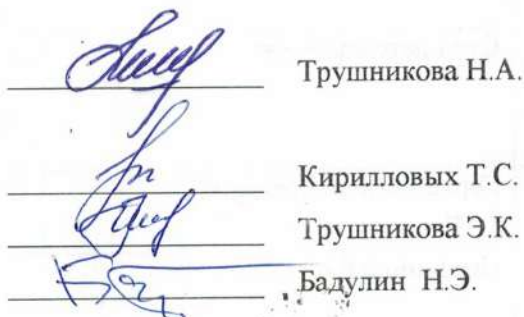 Трушникова Н.А.
Кирилловых Т.С.
Трушникова Э.К.
Бадулин Н.Э.